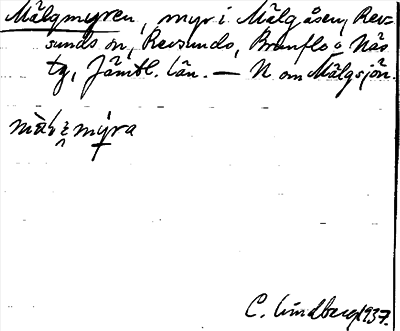 Mälgmyren, myr i Mälgåsen, Rev-
sunds sn, Revsunds, Brunflo o Näs
tg, Jämtl. län. — N om Mälgsjön.
C. Lindberg 1937.